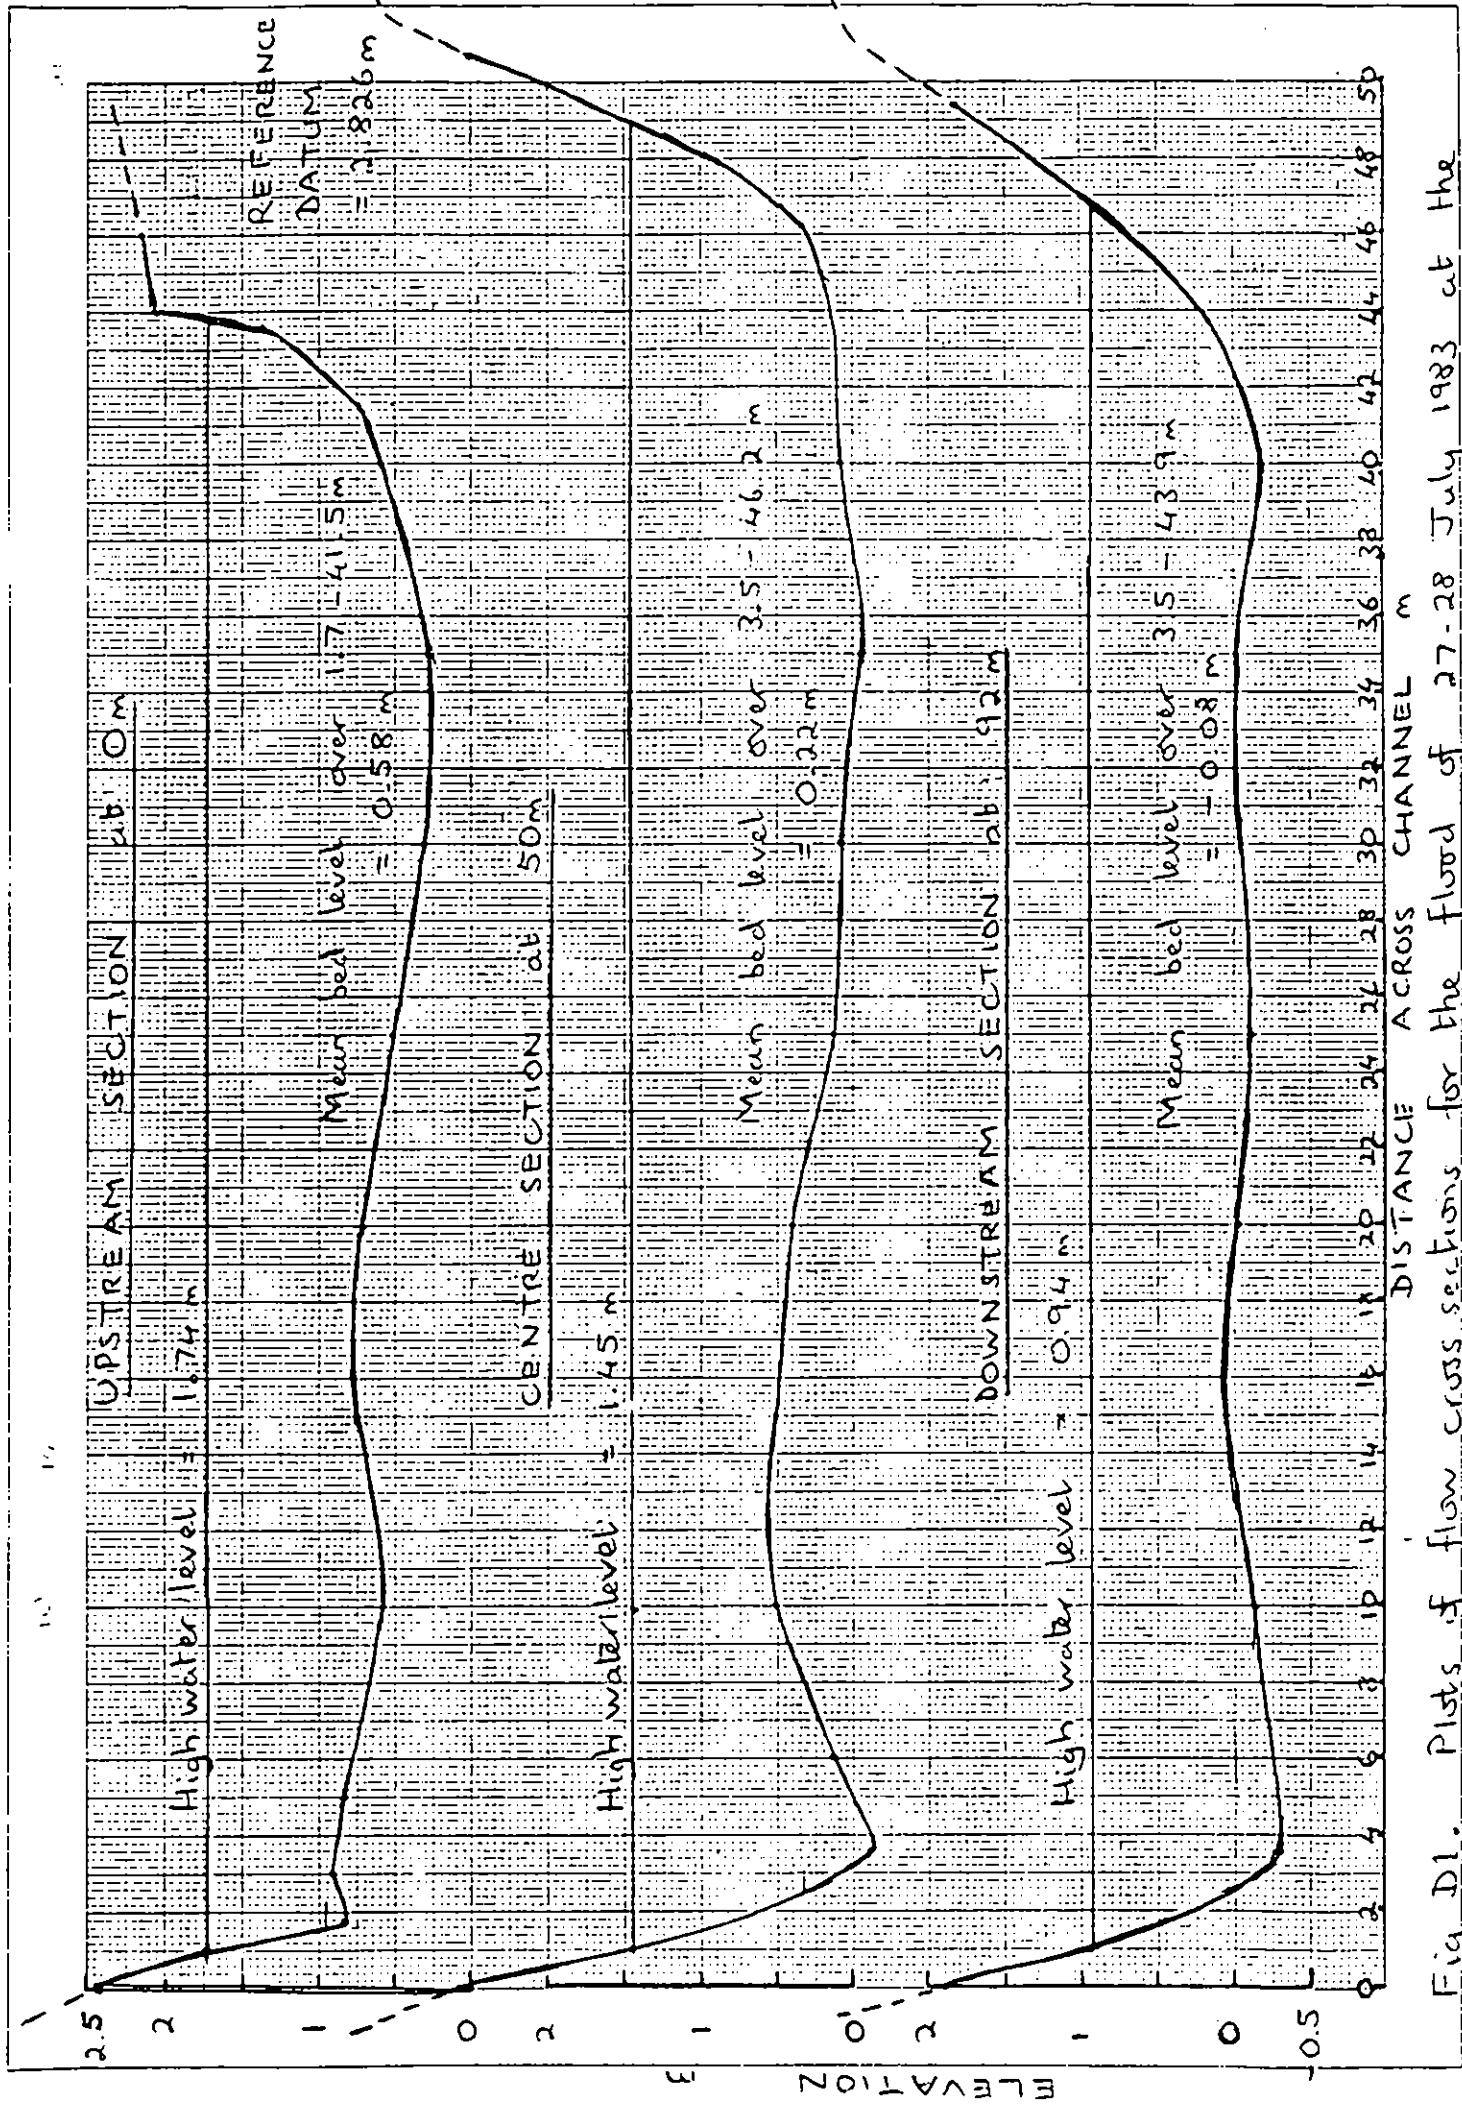 UPSTREAM SECTION at 0m
High water level = 1.74 m
REFERENCE
DATUM
= 21.826m
Mean bed level over 1.7-41.5m
= 0.58 m
CENTRE SECTION at 50m
High water level = 1.45 m
Mean bed level over 3.5-46.2 m
= 0.22 m
DOWNSTREAM SECTION at 92m
High water level = 0.94 m
Mean bed level over 3.5-43.9m
= -0.08 m
ELEVATION m
2.5
2
1
0
2
1
0
2
1
0
-0.5
0 2 4 6 8 10 12 14 16 18 20 22 24 26 28 30 32 34 36 38 40 42 44 46 48 50
DISTANCE ACROSS CHANNEL m
Fig D1. Plots of flow cross sections for the flood of 27-28 July 1983 at the